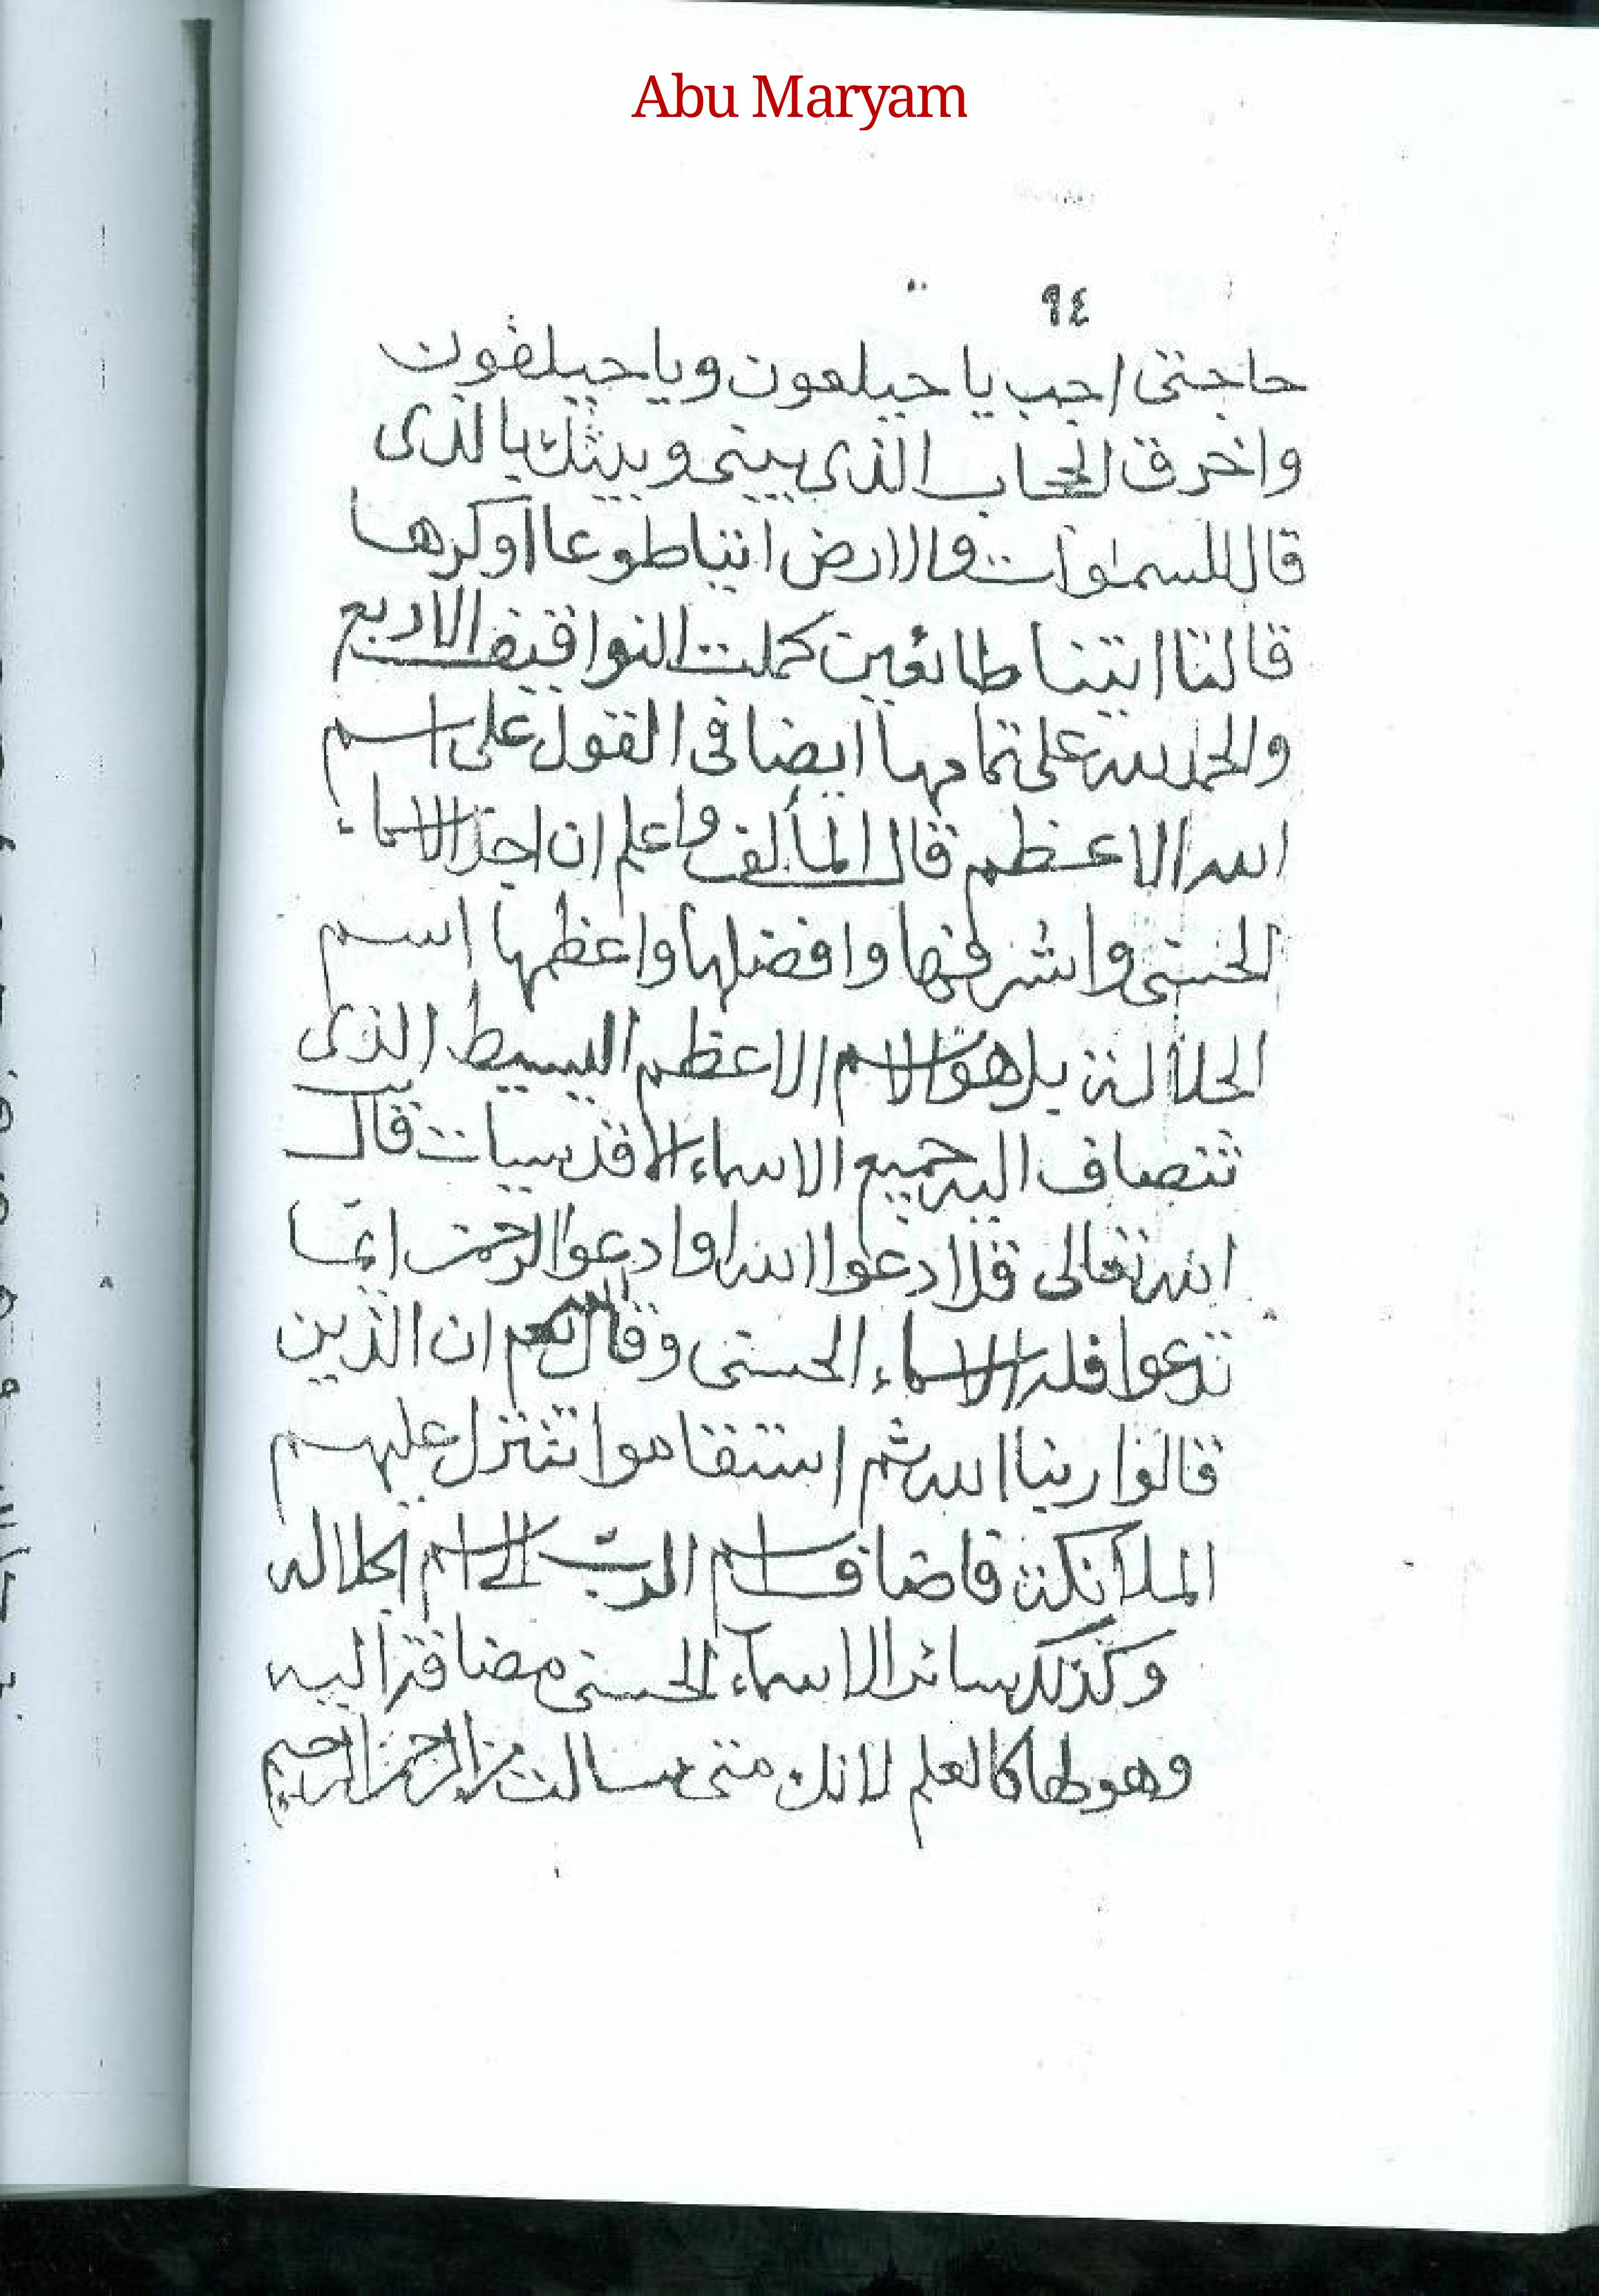 Abu Maryam
٩٤
حاجتى اجب يا حبيلعون ويا جيلفون
واخرق الحجاب الذى بينى وبينك بالذى
قال للسموات والارض ائتيا طوعا اوكرها
قالتا اتينا طائعين كملت النواقيف الاربع
والحمد لله على تمامها ايضا فى القول على اسم
الله الاعظم قال المألف واعلم ان اجل الاسماء
الحسنى واشرفها وافضلها واعظمها اسم
الجلالة بل هو الاسم الاعظم البسيط الذى
تتصاف اليه جميع الاسماء الاقدسيات قال
الله تعالى قل ادعوا الله اوادعوا الرحمن ايّما
تدعوا فله الاسماء الحسنى وقال ان الذين
قالوا ربنا الله ثم استقاموا تتنزل عليهم
الملائكة فاضاف اسم الرب الى اسم الجلاله
وكذلك سائر الاسماء الحسنى مضافة اليه
وهو لها كالعلم لانك متى سالت من الرحمن الرحيم